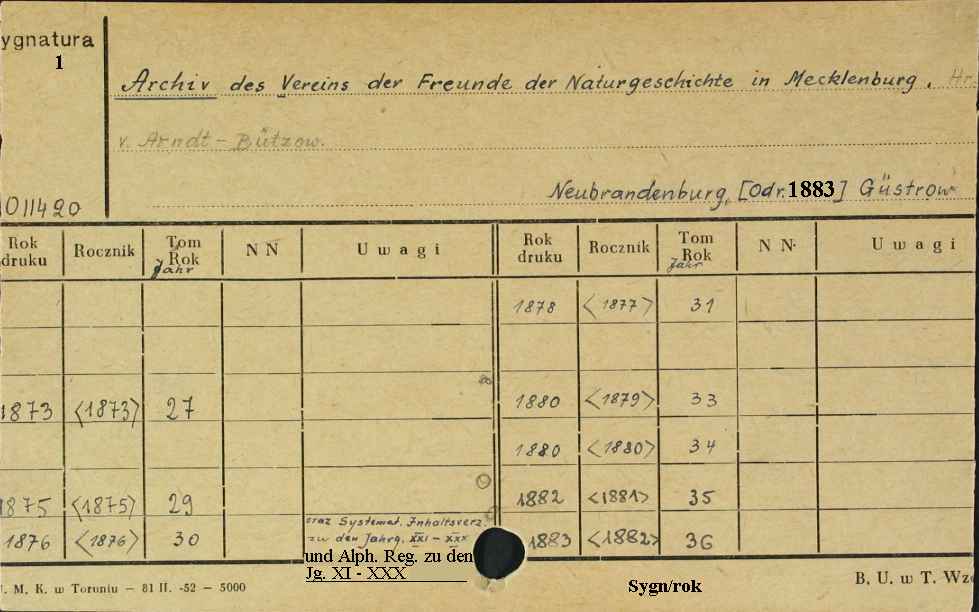 ygnatura
1
Archiv des Vereins der Freunde der Naturgeschichte in Mecklenburg.
v. Arndt - Bützow.
Neubrandenburg, [Odr. 1883] Güstrow
011420
Rok druku Rocznik Tom Rok Jahr N N Uwagi Rok druku Rocznik Tom Rok Jahr N N Uwagi
1878 <1877> 31
1873 <1873> 27 1880 <1879> 33
1880 <1880> 34
1875 <1875> 29 1882 <1881> 35
1876 <1876> 30 oraz Systemat. Inhaltsverz. zu den Jahrg. XXI - XXX 1883 <1882> 36
und Alph. Reg. zu den
Jg. XI - XXX
. M. K. w Toruniu - 81 II. -52 - 5000
Sygn/rok
B. U. w T. Wzó